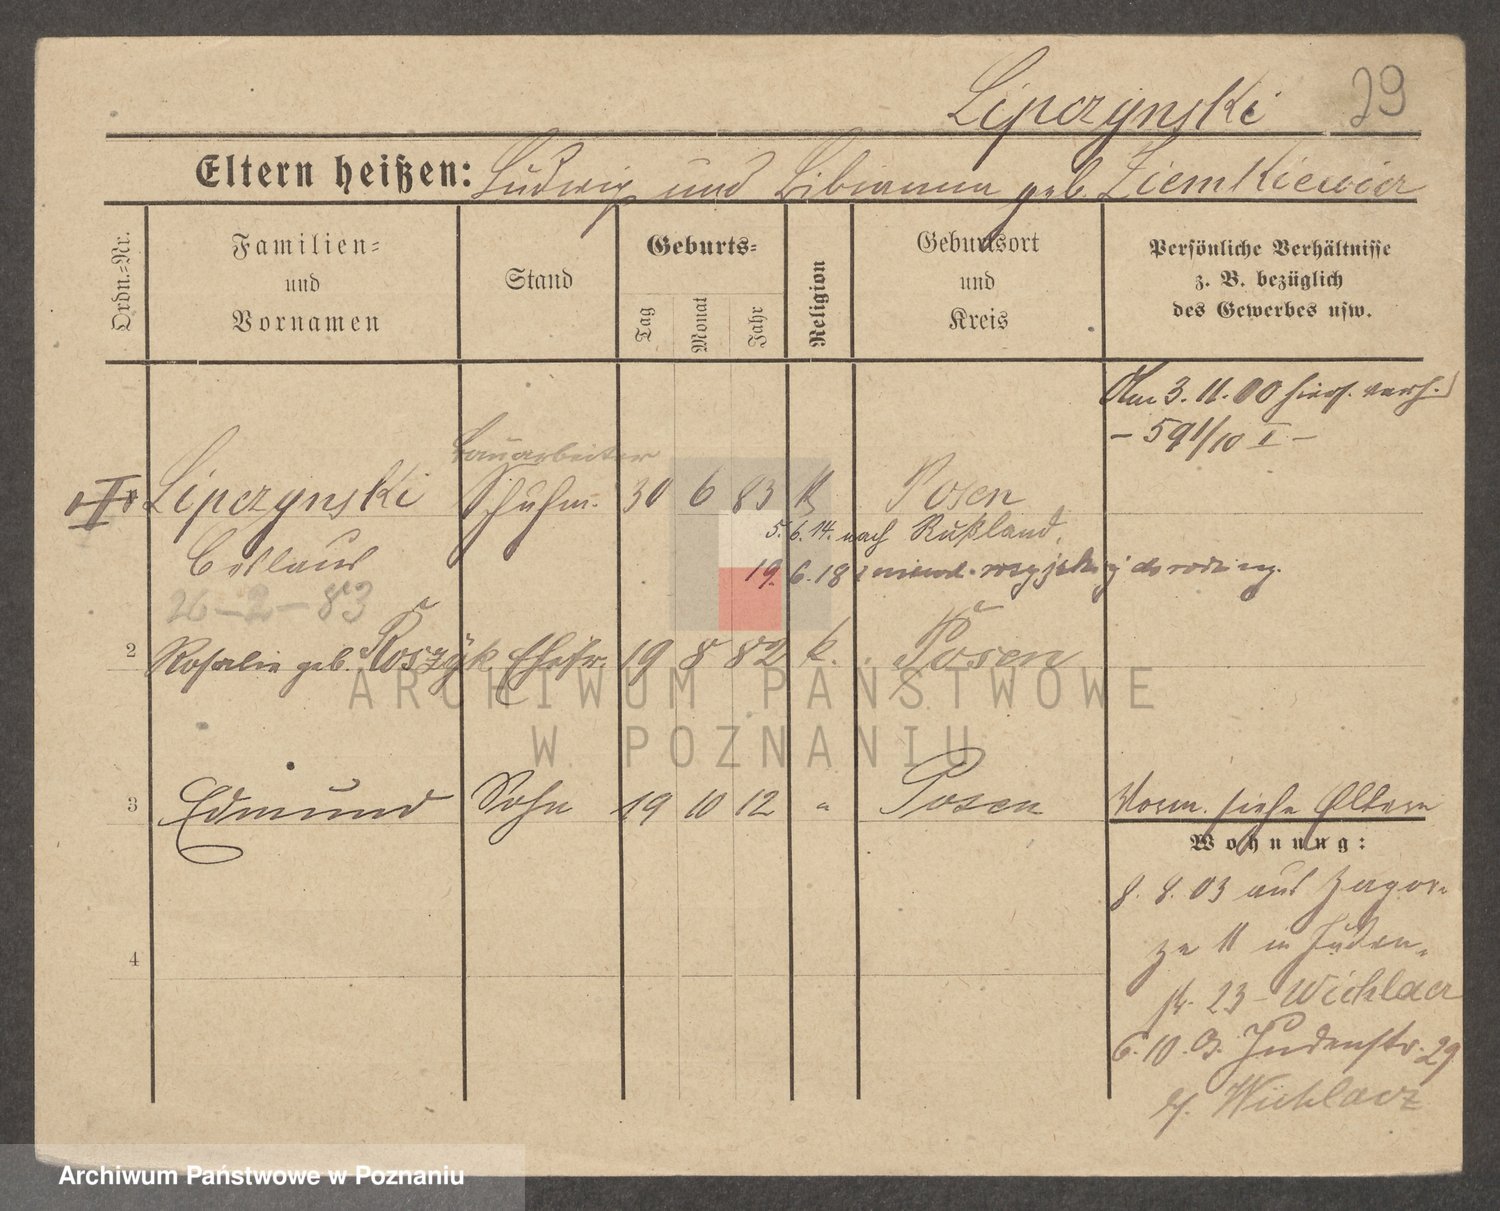 Lipczynski 29
Eltern heißen: Ludwig und Bibianna geb. Ziemkiewicz
Ordn.-Nr.
Familien-
und
Vornamen
Stand
Geburts-
Tag
Monat
Jahr
Religion
Geburtsort
und
Kreis
Persönliche Verhältnisse
z. B. bezüglich
des Gewerbes usw.
Am 3. 11. 00 hier verh.
- 591/10 I -
Bauarbeiter
Lipczynski Schuhm. 30 6 83 k Posen
5. 6. 14. nach Rußland.
19. 6. 18
26-2-83
2 Rosalie geb. Koszyk Ehefr. 19 8 82 k. Posen
ARCHIWUM PAŃSTWOWE
W POZNANIU
3 Edmund Sohn 19 10 12 " Posen
Worm. siehe Eltern
Wohnung:
8. 8. 03 aus Zagor-
ze 11 in Juden-
str. 23 - Wichlacz
4
6. 10. 03. Judenstr. 29
b/. Wichlacz
Archiwum Państwowe w Poznaniu